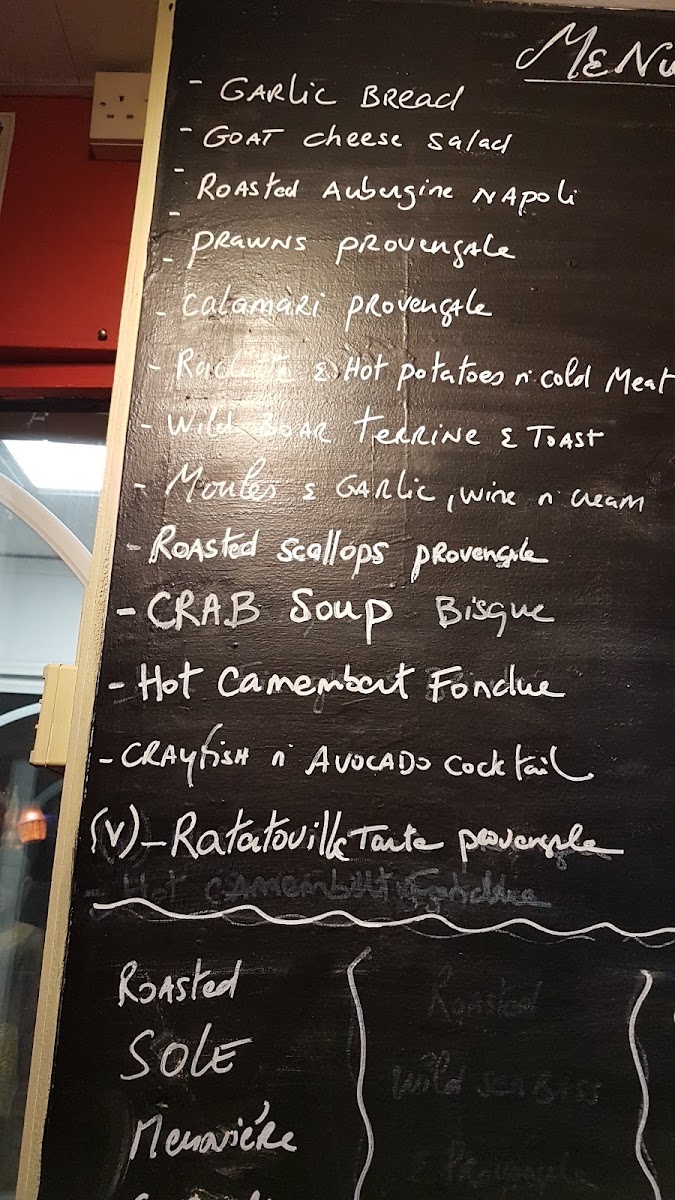 MENU
- GARlic BREad
- GOAT cheese salad
- ROASTed Aubergine NAPOli
- PRAWNS PROVENÇALE
- CAlAMARi PROVENÇALE
- Raclette & Hot potatoes n' cold Meat
- Wild BOAR TERRINE & TOAST
- Moules & GARLic, wine n' cream
- ROASTEd scallops PROVENÇALE
- CRAB Soup Bisque
- Hot Camembert Fondue
- CRAYfisH n' AVOCADO cocktail
(V) - Ratatouille Tarte provençale
- Hot camembert Fondue
ROASTed
SOLE
Roasted
Wild sea Bass
& Provençale